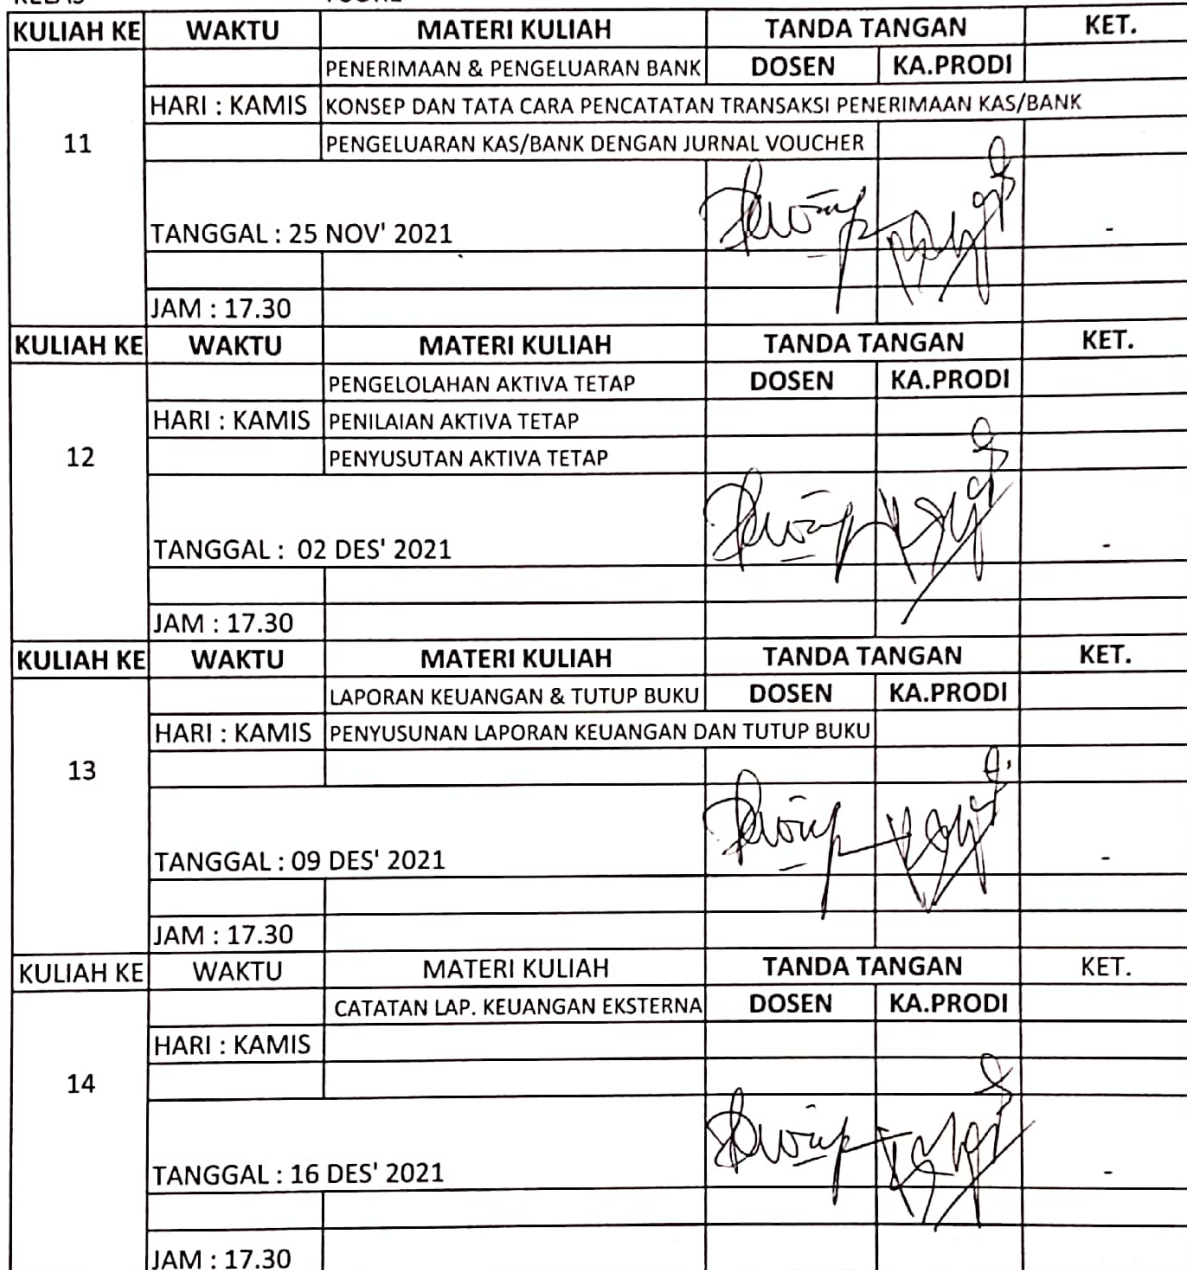 KELAS
KULIAH KE WAKTU MATERI KULIAH TANDA TANGAN KET.
PENERIMAAN & PENGELUARAN BANK DOSEN KA.PRODI
HARI : KAMIS KONSEP DAN TATA CARA PENCATATAN TRANSAKSI PENERIMAAN KAS/BANK
11 PENGELUARAN KAS/BANK DENGAN JURNAL VOUCHER
TANGGAL : 25 NOV' 2021 -
JAM : 17.30
KULIAH KE WAKTU MATERI KULIAH TANDA TANGAN KET.
PENGELOLAHAN AKTIVA TETAP DOSEN KA.PRODI
HARI : KAMIS PENILAIAN AKTIVA TETAP
12 PENYUSUTAN AKTIVA TETAP
TANGGAL : 02 DES' 2021 -
JAM : 17.30
KULIAH KE WAKTU MATERI KULIAH TANDA TANGAN KET.
LAPORAN KEUANGAN & TUTUP BUKU DOSEN KA.PRODI
HARI : KAMIS PENYUSUNAN LAPORAN KEUANGAN DAN TUTUP BUKU
13
TANGGAL : 09 DES' 2021 -
JAM : 17.30
KULIAH KE WAKTU MATERI KULIAH TANDA TANGAN KET.
CATATAN LAP. KEUANGAN EKSTERNA DOSEN KA.PRODI
HARI : KAMIS
14
TANGGAL : 16 DES' 2021 -
JAM : 17.30